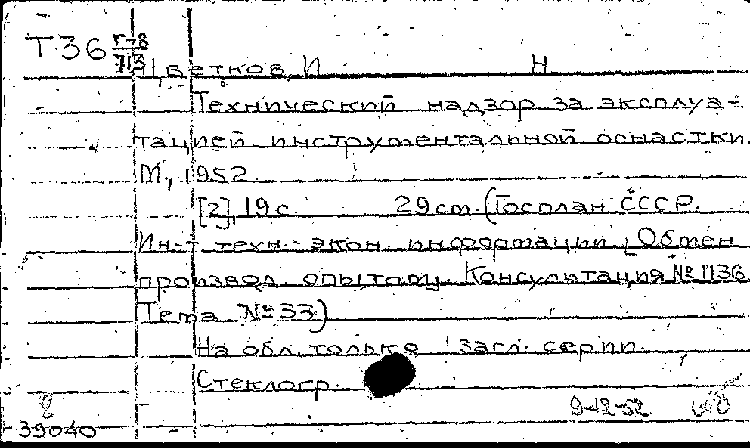 Т36 Г-8
713
Цветков, И Н
Технический надзор за эксплуа-
тацией инструментальной оснастки.
М., 1952.
[2], 19 с. 29 см. (Госплан СССР.
Ин-т техн.-экон. информации. Обмен
производ. опытом. Консультация № 1136
Тема № 33)
На обл. только загл. серии.
Стеклогр.
9-12-52
39040